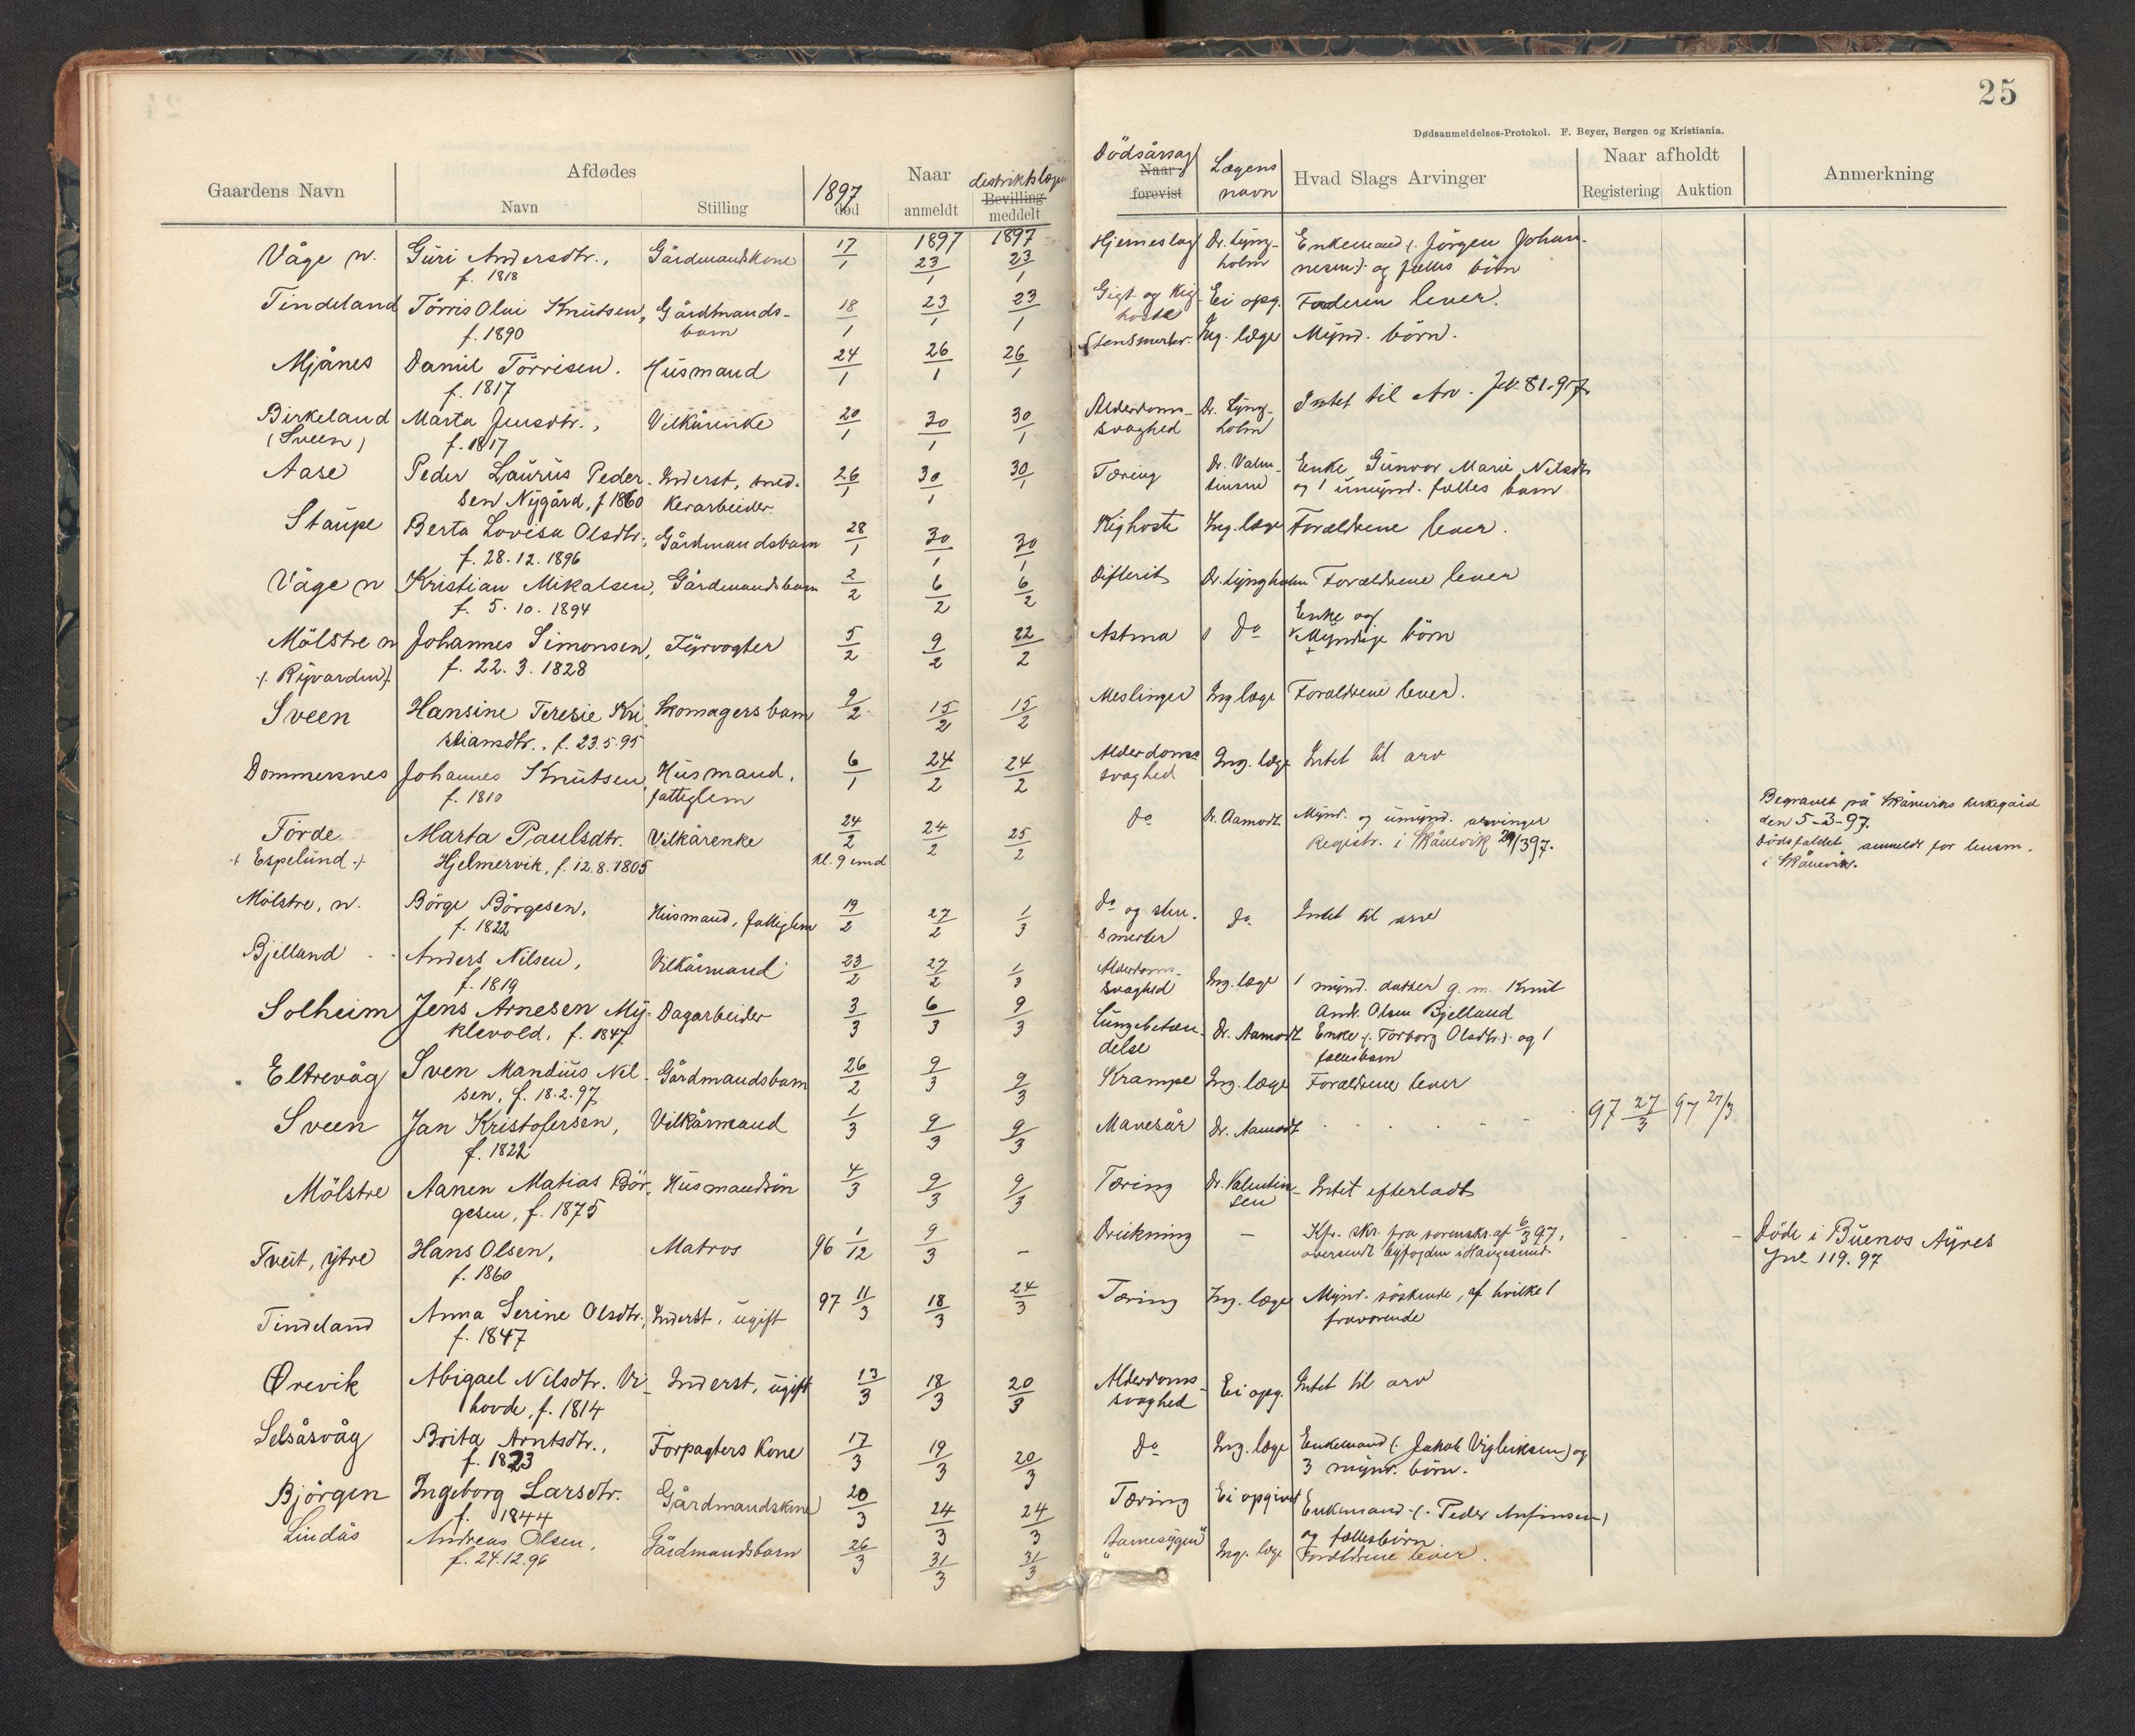 25
Dødsanmeldelses-Protokol. F. Beyer, Bergen og Kristiania.
Gaardens Navn
Afdødes
Navn
Stilling
1897
død
Naar
anmeldt
distriktslægen
Bevilling
meddelt
Dödsårsag
Naar
forevist
Lægens
navn
Hvad Slags Arvinger
Naar afholdt
Registering
Auktion
Anmerkning
1897 1897
Våge n. Guri Andersdtr., Gårdmandskone 17/1 23/1 23/1 Hjerneslag Dr. Lyng- Enkemand (: Jörgen Johan-
f. 1818 holm nesen:) og fælles börn
Tindeland Törris Olai Knutsen, Gårdmands- 18/1 23/1 23/1 Gigt og Kig- Ei opg. Faderen lever.
f. 1890 barn hoste
Mjånes Daniel Törrisen. Husmand 24/1 26/1 26/1 Stensmerter. Ing. læge Mynd. börn.
f. 1817
Birkeland Marta Jensdtr., Vilkårenke 20/1 30/1 30/1 Alderdoms- Dr. Lyng- Intet til Arv. Jr. 81-97.
(Sveen) f. 1817 svaghed holm
Aase Peder Laurus Peder- Inderst, sned- 26/1 30/1 30/1 Tæring Dr. Valen- Enke Gunvor Marie Nilsdtr
sen Nygård, f 1860 kerarbeider tinsen og 1 umynd. fælles barn
Staupe Berta Lovisa Olsdtr., Gårdmandsbarn 28/1 30/1 30/1 Kighoste Ing. læge Forældrene lever.
f. 28.12.1896
Våge n Kristian Mikalsen, Gårdmandsbarn 2/2 6/2 6/2 Difterit Dr. Lyngholm Forældrene lever
f. 5.10.1894
Mölstre n Johannes Simonsen, Fyrvogter 5/2 9/2 22/2 Astma do Enke og
(: Ryvarden :) f. 22.3.1828 Myndige börn
Sveen Hansine Teresie Kri- Skomagersbarn 9/2 15/2 15/2 Meslinger Ing læge Forældrene lever.
stiansdtr., f. 23.5.95
Dommersnes Johannes Knutsen Husmand, 6/1 24/2 24/2 Alderdoms- Ing. læge Intet til arv
f. 1810 fattiglem svaghed
Förde Marta Paulsdtr. Vilkårenke 24/2 24/2 25/2 do Dr. Aamodt Mynd. og umynd. arvinger
(: Espelund :) Hjelmervik, f. 12.8.1805 Kl. 9 emd Registr. i Skånevik 29/3 97.
Begravet på Skånevik kirkegård
den 5-3-97.
Dödsfaldet anmeldt for lensm.
i Skånevik.
Mölstre, n. Börge Börgesen, Husmand, fattiglem 19/2 27/2 1/3 do og sten- do Intet til arv
f. 1822 smerter
Bjelland Anders Nilsen, Vilkårmand 23/2 27/2 1/3 Alderdoms- Ing. læge 1 mynd. datter g. m. Knut
f. 1819 svaghed And. Olsen Bjelland
Solheim Jens Arnesen My- Dagarbeider 3/3 6/3 9/3 Lungebetæn- Dr. Aamodt Enke (: Torborg Olsdtr :) og 1
klevold, f. 1847 delse fællesbarn
Eltrevåg Sven Mandius Nil- Gårdmandsbarn 26/2 9/3 9/3 Krampe Ing. læge Forældrene lever
sen, f. 18.2.97
Sveen Jan Kristofersen, Vilkårmand 1/3 9/3 9/3 Mavesår Dr. Aamodt 97 27/3 97 27/3
f. 1822
Mölstre Aanen Matias Bör- Husmandsön 4/3 9/3 9/3 Tæring Dr. Valentin- Intet efterladt
gesen, f. 1875 sen
Tveit, ytre Hans Olsen, Matros 96 1/12 9/3 - Drukning - Kfr. skr. fra sorenskr. af 6/3 97, Döde i Buenos Ayres
f. 1860 oversendt byfogden i Haugesund. Jnl 119.97
Tindeland Anna Serine Olsdtr. Inderst, ugift 97 11/3 18/3 24/3 Tæring Ing. læge Mynd. söskende, af hvilke 1
f. 1847 fraværende
Ørevik Abigael Nilsdtr. Vi- Inderst, ugift 13/3 18/3 20/3 Alderdoms- Ei opg. Intet til arv
hovde, f. 1814 svaghed
Selsåsvåg Brita Arntsdtr., Forpagters Kone 17/3 19/3 20/3 do Ing. læge Enkemand (: Jakob Vigleiksen) og
f. 1823 3 mynd. börn.
Björgen Ingeborg Larsdtr. Gårdmandskone 20/3 24/3 24/3 Tæring Ei opgivet Enkemand (: Peder Anfinsen)
f. 1844 og fællesbörn
Lindås Andreas Olsen, Gårdmandsbarn 26/3 31/3 31/3 "Barnesygen" Ing. læge Forældrene lever.
f. 24.12.96